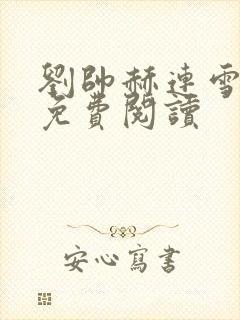 劉帥赫連雪
免費閱讀
安心寫書